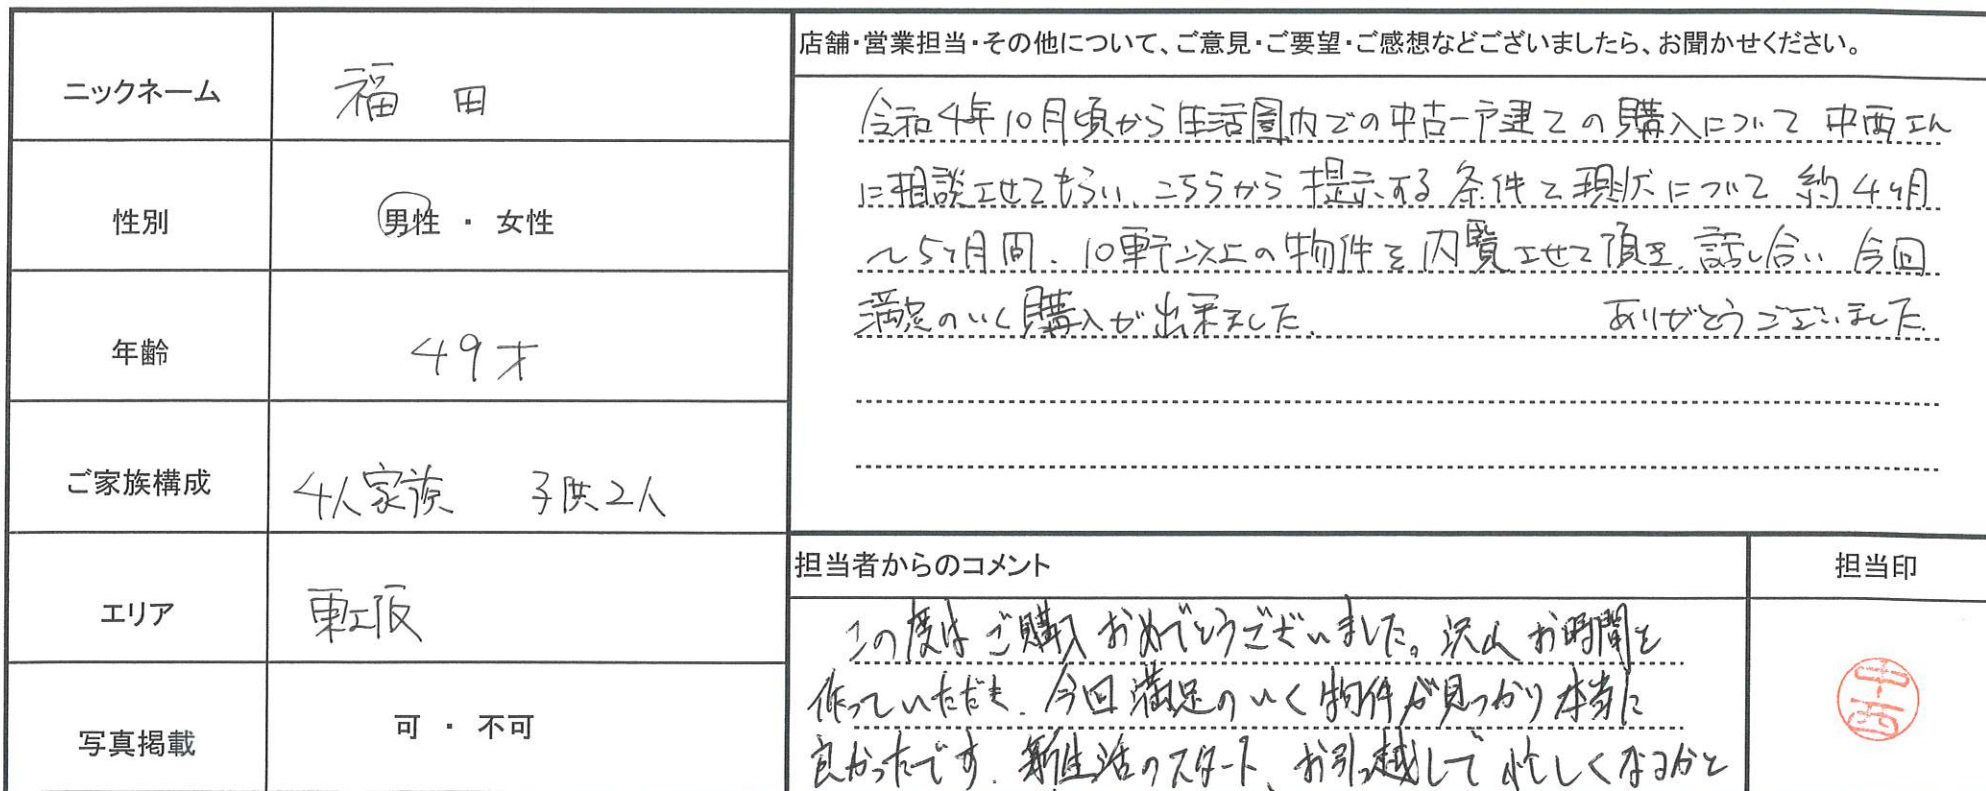 ニックネーム
福田
性別
男性 ・ 女性
年齢
49才
ご家族構成
4人家族 子供2人
エリア
東大阪
写真掲載
可 ・ 不可
店舗・営業担当・その他について、ご意見・ご要望・ご感想などございましたら、お聞かせください。
令和4年10月頃から生活圏内での中古一戸建ての購入について中西さん
に相談させてもらい、こちらから提示する条件と現状について約4ヶ月
〜5ヶ月間、10軒以上の物件を内覧させて頂き、話し合い今回
満足のいく購入が出来ました。 ありがとうございました。
担当者からのコメント
この度はご購入おめでとうございました。沢山お時間を
作っていただき、今回満足のいく物件が見つかり本当に
良かったです。新生活のスタート、お引っ越しで忙しくなるかと
担当印
中西